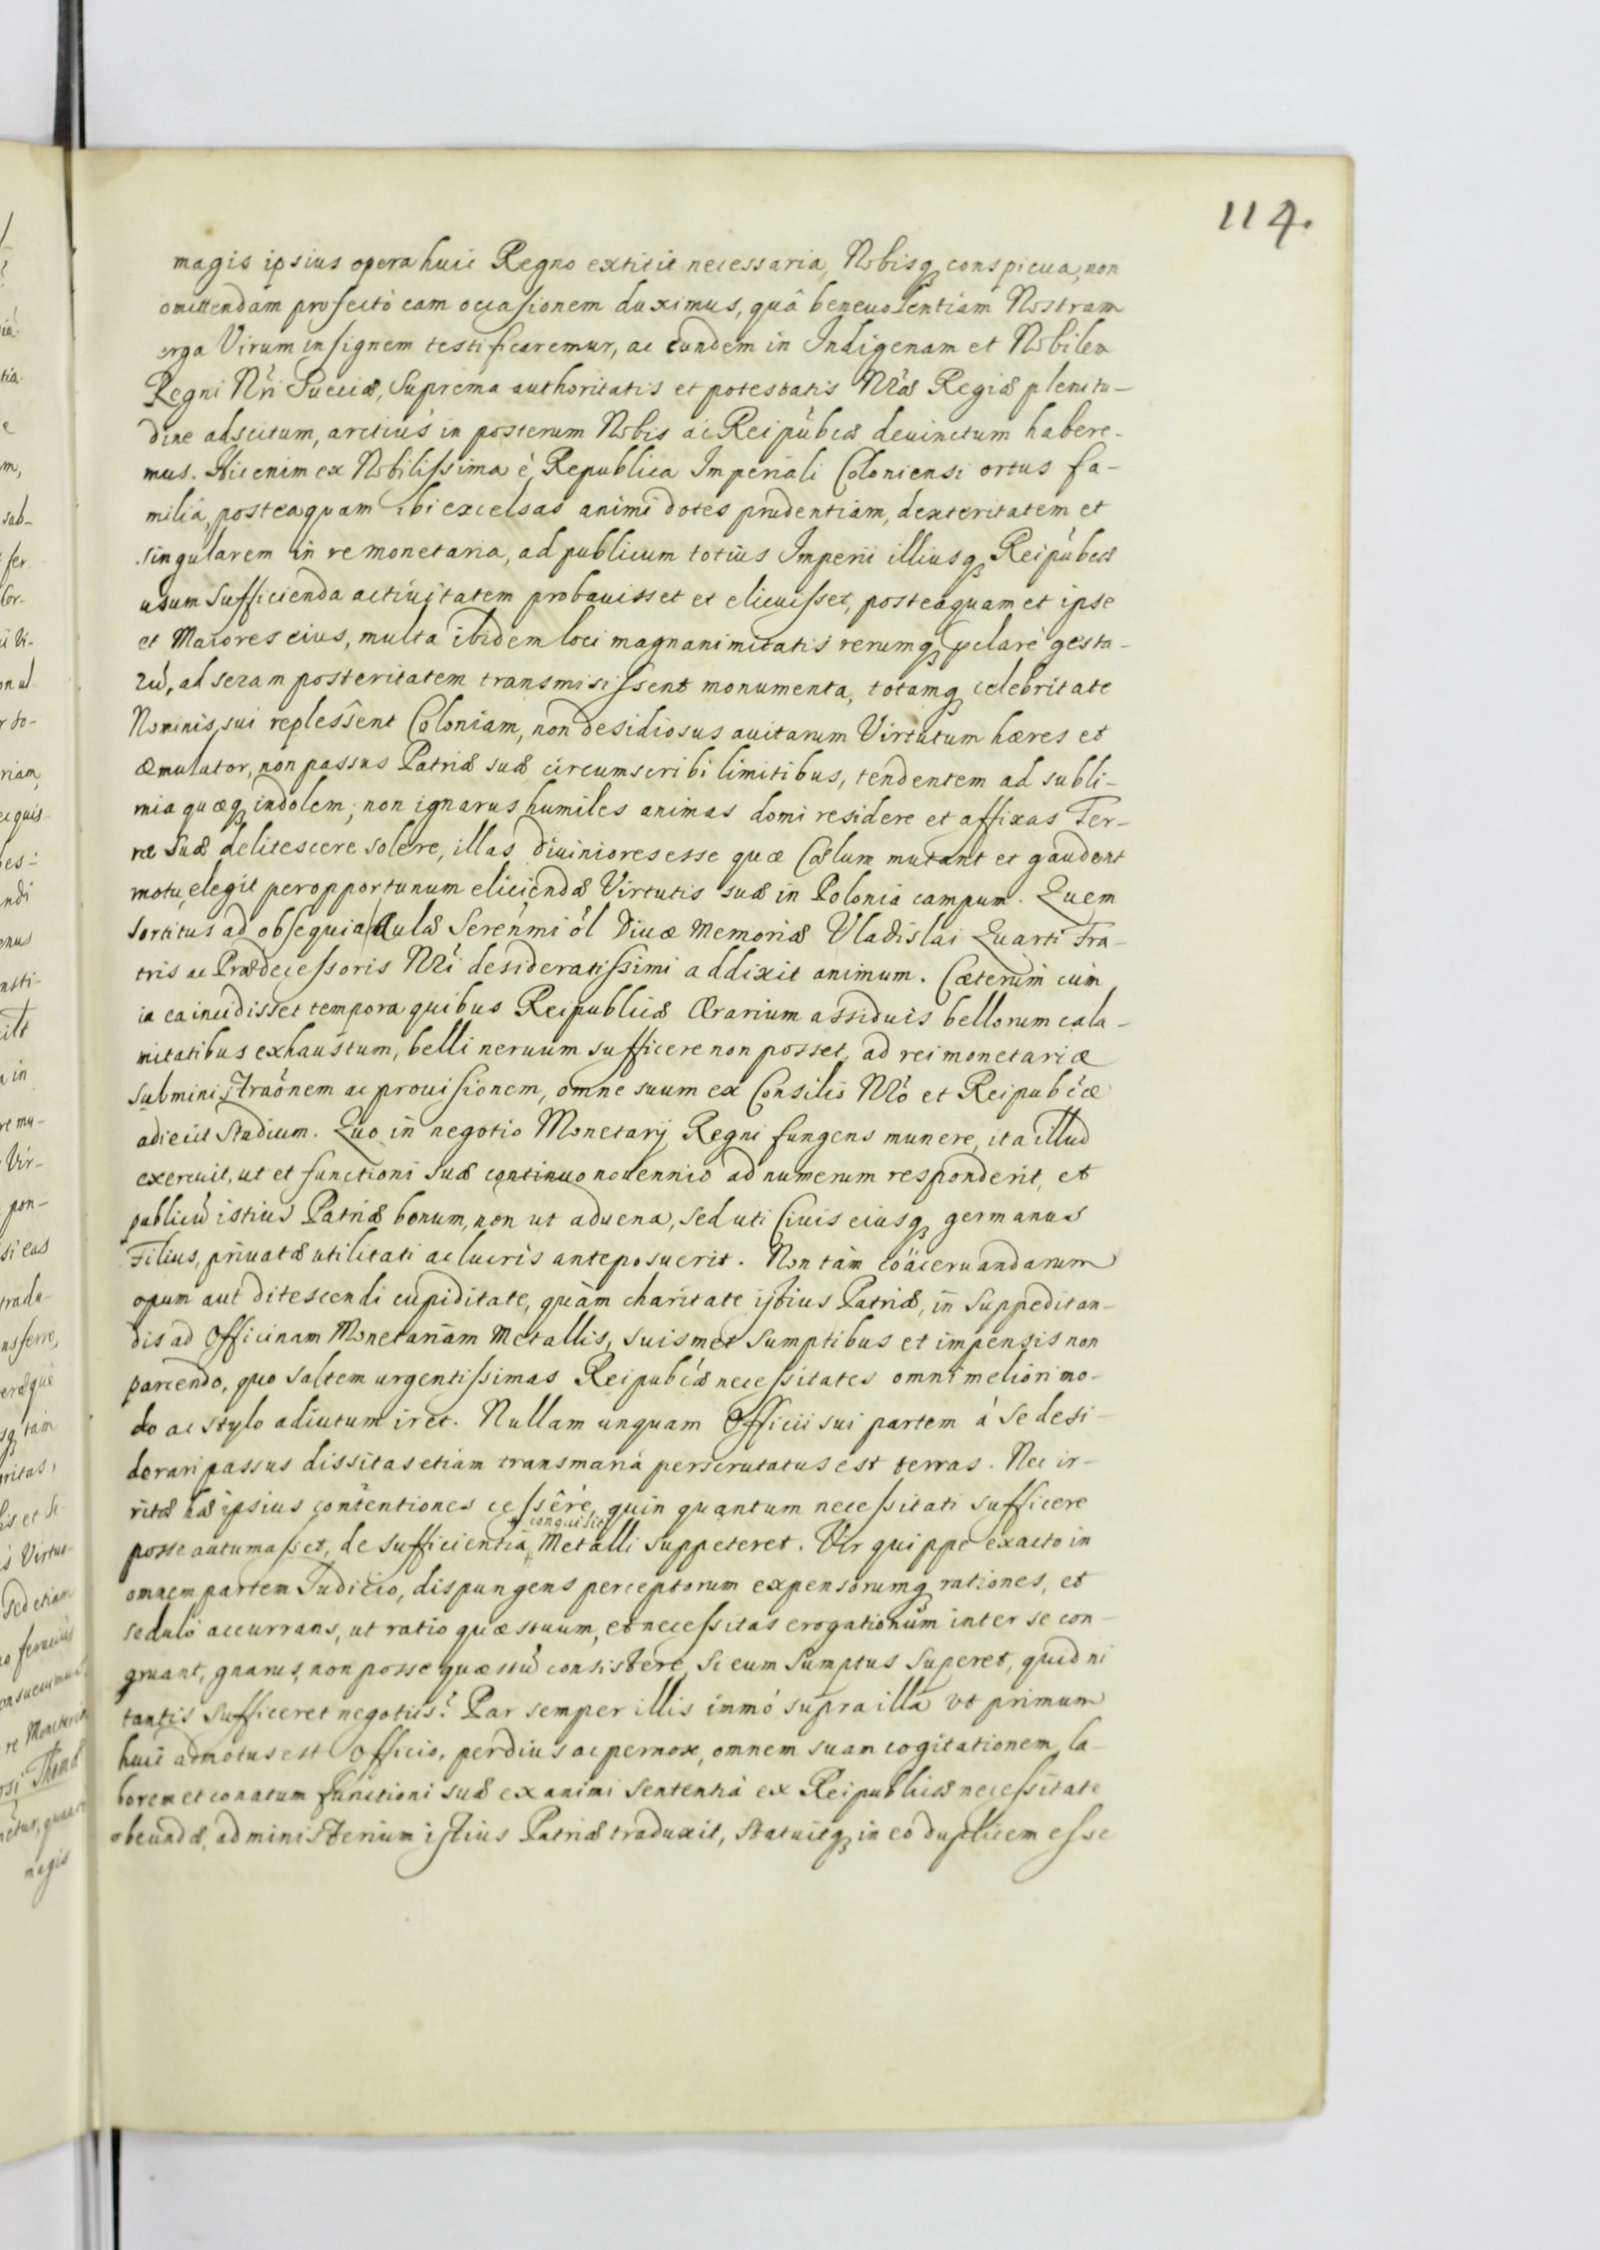 114.
magis ipsius opera huic Regno extitit necessaria, Nobisq conspicua, non
omittendam profectò eam occasionem duximus, quâ beneuolentiam Nostram
erga Virum insignem testificaremur, ac eundem in Indigenam et Nobilem
Regni Nri Sueciæ, Suprema authoritatis et potestatis Nræ Regiæ plenitu-
dine adscitum, arctius in posterum Nobis ac Reipubcæ deuinctum habere-
mus. Hic enim ex Nobilissima è Republica Imperiali Coloniensi ortus fa-
milia, posteaquam ibi excelsas animi dotes prudentiam, dexteritatem et
singularem in re monetaria, ad publicum totius Imperii illiusq Reipubcæ
usum sufficienda actiuitatem probauisset et elicuisset, posteaquam et ipse
et Maiores eius, multa ibidem loci magnanimitatis rerumq pclarè gesta-
rū, ad seram posteritatem transmisissent monumenta, totamq celebritate
Nominis sui replessent Coloniam, non desidiosus auitarum Virtutum hæres et
æmulator, non passus Patriæ suæ circumscribi limitibus, tendentem ad subli-
mia quæq indolem; non ignarus humiles animas domi residere et affixas Ter-
ræ Suæ delitescere solere, illas diuiniores esse quæ Cœlum mutant et gaudent
motu, elegit peropportunum eliciendæ Virtutis suæ in Polonia campum. Quem
sortitus ad obsequia Aulæ Serenmi ol Diuæ Memoriæ Vladislai Quarti Fra-
tris ac Prædecessoris Nri desideratissimi addixit animum. Cæterum cùm
in ea incidisset tempora quibus Reipublicæ Ærarium assiduis bellorum cala-
mitatibus exhaustum, belli neruum sufficere non posset, ad rei monetariæ
subministraonem ac prouisionem, omne suum ex Consilio Nro et Reipubcæ
adiecit studium. Quo in negotio Monetarij Regni fungens munere, ita illud
exercuit, ut et functioni suæ continuo nouennio ad numerum responderit, et
publicū istius Patriæ bonum, non ut aduena, sed uti Ciuis eiusq germanus
Filius, priuatæ utilitati ac lucris anteposuerit. Non tàm coäceruandarum
opum aut ditescendi cupiditate, quàm charitate istius Patriæ, in suppeditan-
dis ad Officinam Monetariam Metallis, suismet sumptibus et impensis non
parcendo, quo saltem urgentissimas Reipubcæ necessitates omni meliori mo-
do ac stylo adiutum iret. Nullam unquam Officii sui partem á se desi-
derari passus dissitas etiam transmariā perscrutatus est terras. Nec ir-
ritæ hæ ipsius contentiones cessêre, quin quantum necessitati sufficere
conquisiti
posse autumasset, de sufficientia Metalli suppeteret. Vir quippe exacto in
omnem partem Iudicio, dispungens perceptorum expensorumq rationes, et
sedulò accurrans, ut ratio quæstuum, et necessitas erogationum inter se con-
gruant, gnarus, non posse quæstū consistere, si eum sumptus superet, quid ni
tantis sufficeret negotiis? Par semper illis immò supra illa vt primum
huic admotus est Officio, perdius ac pernox, omnem suam cogitationem, la-
borem et conatum functioni suæ ex animi sententia ex Reipublicæ necessitate
obeundæ, ad ministerium istius Patriæ traduxit, statuitq in eo duplicem esse